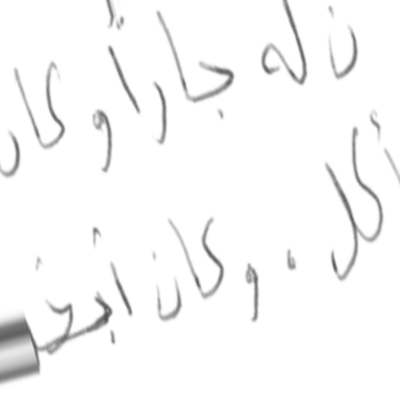 ن له جاراً وكان
أكل ، وكان أبخ